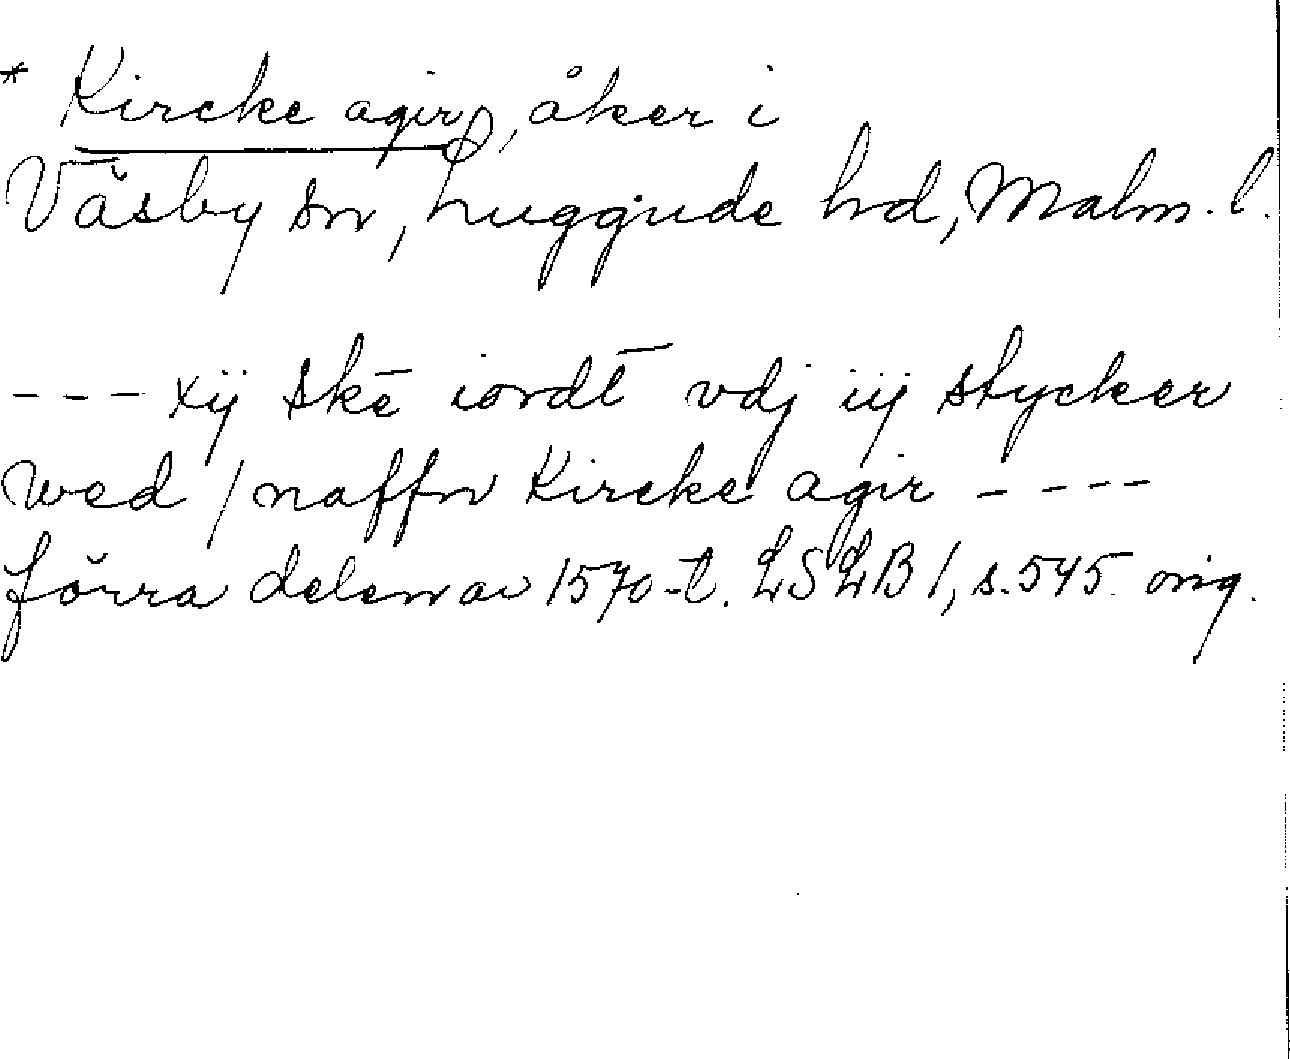 * Kircke agir, åker i
Väsby sn, Luggude hd, Malm. l.
--- xij skē iordt̄ vdj iij stycker
wed / naffn Kircke agir ----
förra delen av 1570-t. LSLB 1, s. 545 orig.